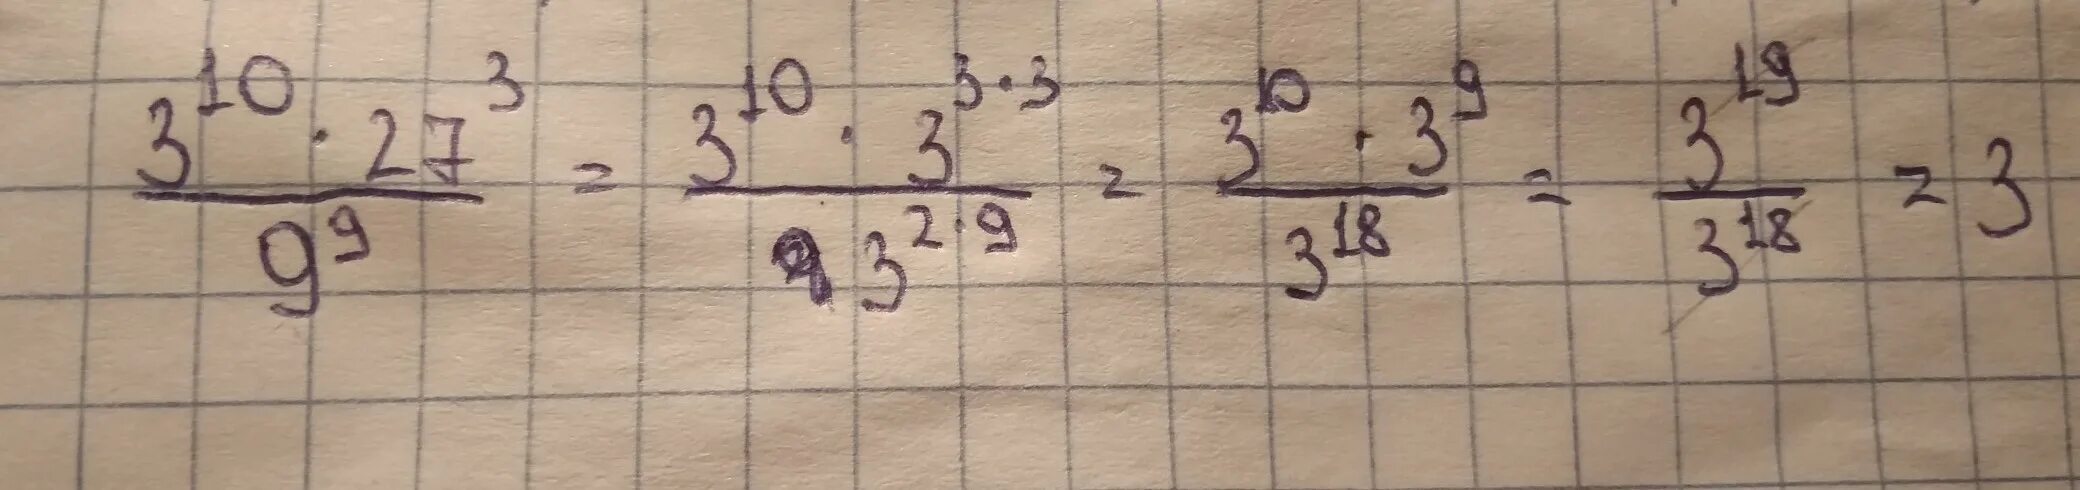 3^10 · 27^3 / 9^9 = 3^10 · 3^3·3 / 3^2·9 = 3^10 · 3^9 / 3^18 = 3^19 / 3^18 = 3